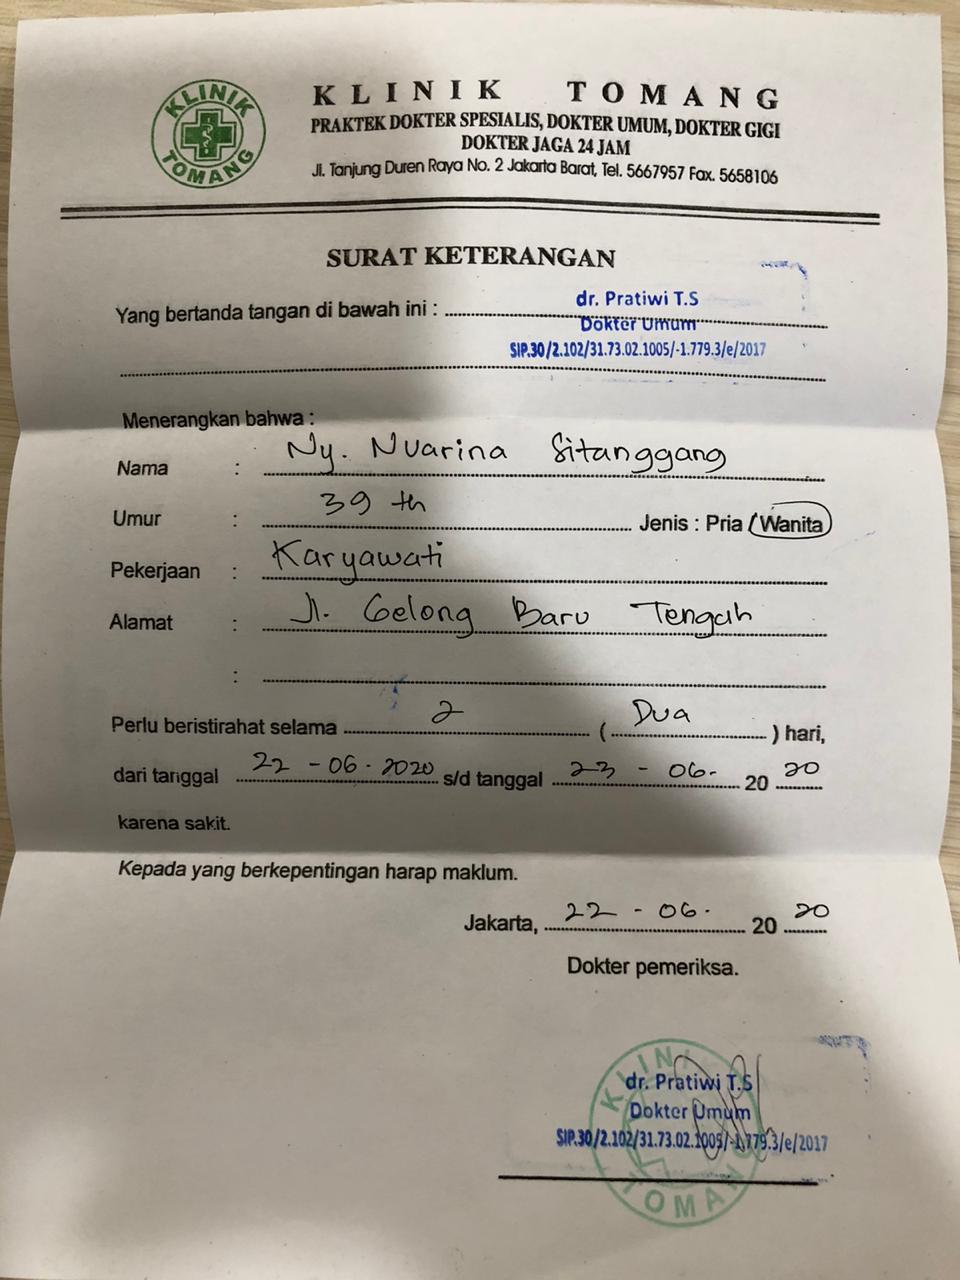 KLINIK TOMANG
KLINIK TOMANG
PRAKTEK DOKTER SPESIALIS, DOKTER UMUM, DOKTER GIGI
DOKTER JAGA 24 JAM
Jl. Tanjung Duren Raya No. 2 Jakarta Barat, Tel. 5667957 Fax. 5658106
SURAT KETERANGAN
Yang bertanda tangan di bawah ini : dr. Pratiwi T.S
Dokter Umum
SIP.30/2.102/31.73.02.1005/-1.779.3/e/2017
Menerangkan bahwa :
Nama : Ny. Nuarina Sitanggang
Umur : 39 th Jenis : Pria / Wanita
Pekerjaan : Karyawati
Alamat : Jl. Gelong Baru Tengah
:
Perlu beristirahat selama 2 ( Dua ) hari,
dari tanggal 22 - 06 - 2020 s/d tanggal 23 - 06 - 20 20
karena sakit.
Kepada yang berkepentingan harap maklum.
Jakarta, 22 - 06 - 20 20
Dokter pemeriksa.
KLINIK TOMANG
dr. Pratiwi T.S
Dokter Umum
SIP.30/2.102/31.73.02.1005/-1.779.3/e/2017